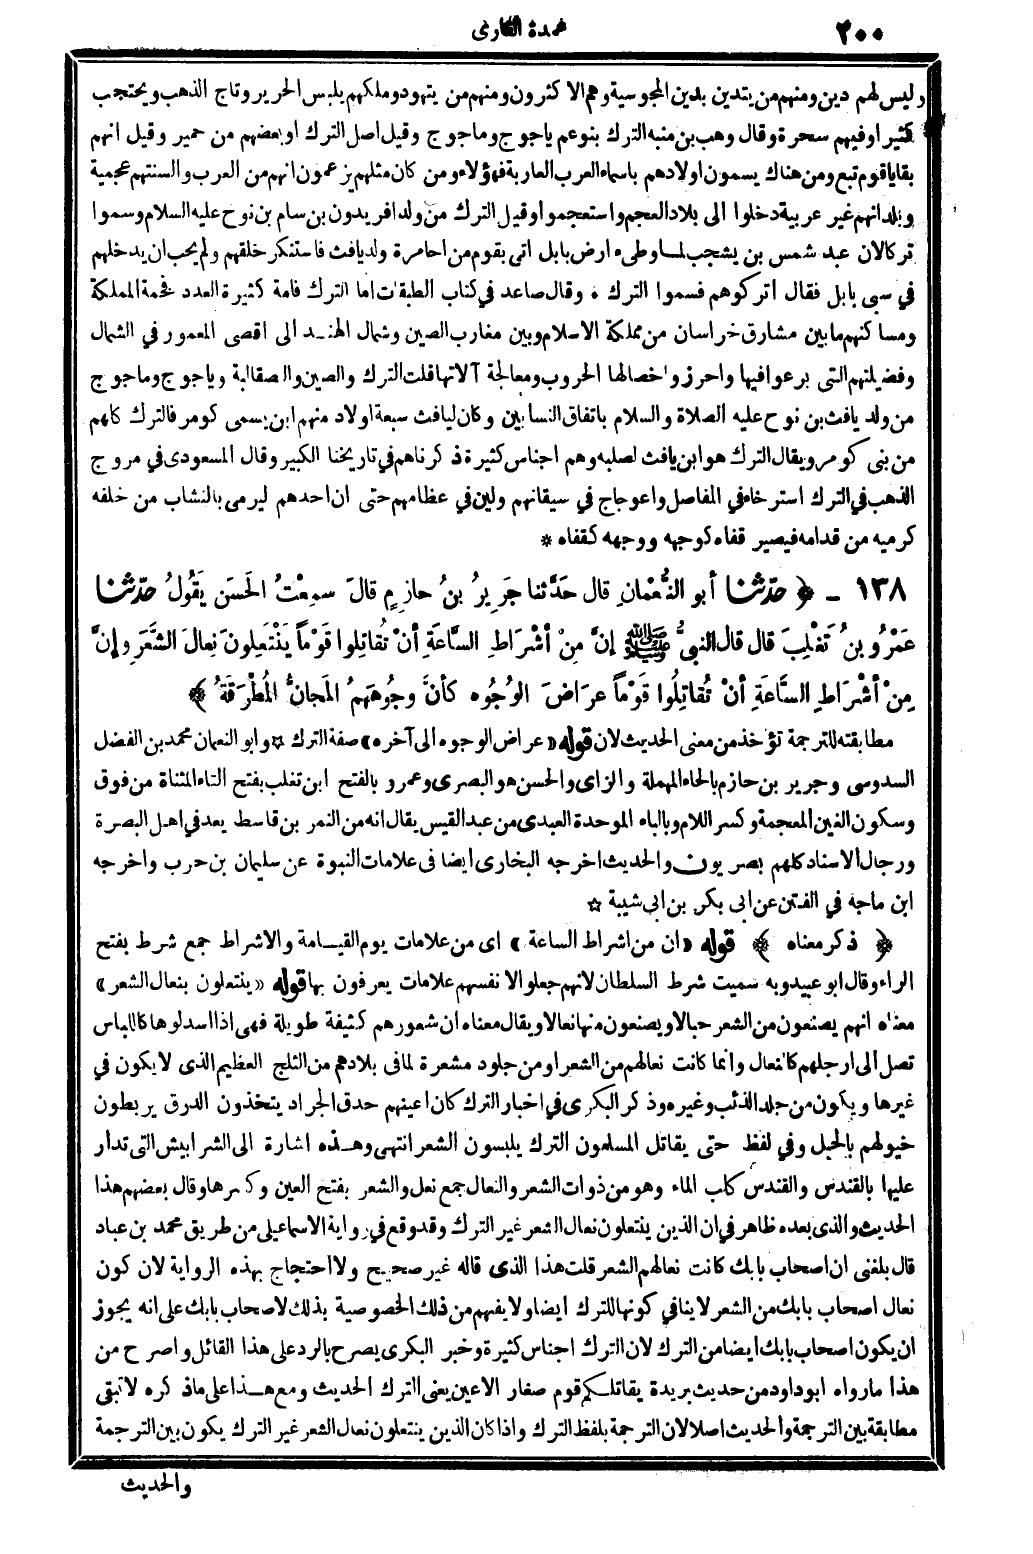 ٢٠٠
عمدة القارى
وليس لهم دين ومنهم من يتدين بدين المجوسية وهم الاكثرون ومنهم من يتهود وملكهم يلبس الحرير وتاج الذهب ويحتجب
كثيرا وفيهم سحرة وقال وهب بن منبه الترك بنو عم ياجوج وماجوج وقيل اصل الترك او بعضهم من حمير وقيل انهم
بقايا قوم تبع ومن هناك يسمون اولادهم باسماء العرب العاربة فهؤلاء ومن كان مثلهم يزعمون انهم من العرب والسنتهم عجمية
وبلدانهم غير عربية دخلوا الى بلاد العجم واستعجموا وقيل الترك من ولد افريدون بن سام بن نوح عليه السلام وسموا
تركا لان عبد شمس بن يشجب لما وطىء ارض بابل اتى بقوم من احامرة ولد يافث فاستنكر خلقهم ولم يحب ان يدخلهم
في سبى بابل فقال اتركوهم فسموا الترك ٠ وقال صاعد في كتاب الطبقات اما الترك فامة كثيرة العدد فخمة المملكة
ومساكنهم ما بين مشارق خراسان من مملكة الاسلام وبين مغارب الصين وشمال الهنــد الى اقصى المعمور في الشمال
وفضيلتهم التى برعوا فيها واحرزوا خصالها الحروب ومعالجة آلاتها قلت الترك والصين والصقالبة وياجوج وماجوج
من ولد يافث بن نوح عليه الصلاة والسلام باتفاق النسابين وكان ليافث سبعة اولاد منهم ابن يسمى كومر فالترك كلهم
من بنى كومر ويقال الترك هو ابن يافث لصلبه وهم اجناس كثيرة ذكرناهم في تاريخنا الكبير وقال المسعودى في مروج
الذهب في الترك استرخاء في المفاصل واعوجاج في سيقانهم ولين في عظامهم حتى ان احدهم ليرمى بالنشاب من خلفه
كرميه من قدامه فيصير قفاه كوجهه ووجهه كقفاه *
١٣٨ ــ ﴿ حدّثنا أبو النُّعْمانِ قال حَدَّثنا جَرِيرُ بنُ حازِمٍ قالَ سمِعْتُ الحَسَنَ يَقُولُ حدّثنا
عَمْرُو بنُ تَغْلِبَ قال قال النبيُّ ﷺ إنَّ مِنْ أشْرَاطِ السَّاعَةِ أنْ تُقاتِلوا قَوْماً يَنْتَعِلونَ نِعالَ الشَّعَرِ وإنَّ
مِنْ أشْرَاطِ السَّاعَةِ أنْ تُقاتِلُوا قَوْماً عِراضَ الوُجُوهِ كأنَّ وجُوهَهُمُ المَجانُّ المُطْرَقَةُ ﴾
مطابقته للترجمة تؤخذ من معنى الحديث لان قوله «عراض الوجوه الى آخره» صفة الترك ☆ وابو النعمان محمد بن الفضل
السدوسى وجرير بن حازم بالحاء المهملة والزاى والحسن هو البصرى وعمرو بالفتح ابن تغلب بفتح التاء المثناة من فوق
وسكون الغين المعجمة وكسر اللام وبالباء الموحدة العبدى من عبد القيس يقال انه من النمر بن قاسط يعد في اهل البصرة
ورجال الاسناد كلهم بصريون والحديث اخرجه البخارى ايضا فى علامات النبوة عن سليمان بن حرب واخرجه
ابن ماجه في الفتن عن ابى بكر بن ابى شيبة ☆
﴿ ذكر معناه ﴾ قوله «ان من اشراط الساعة» اى من علامات يوم القيــامة والاشراط جمع شرط بفتح
الراء وقال ابو عبيد وبه سميت شرط السلطان لانهم جعلوا لانفسهم علامات يعرفون بها قوله «ينتعلون بنعال الشعر»
معناه انهم يصنعون من الشعر حبالا ويصنعون منها نعالا ويقال معناه ان شعورهم كثيفة طويلة فهى اذا اسدلوها كاللباس
تصل الى ارجلهم كالنعال وانما كانت نعالهم من الشعر او من جلود مشعرة لما فى بلادهم من الثلج العظيم الذى لا يكون في
غيرها ويكون من جلد الذئب وغيره وذكر البكرى في اخبار الترك كان اعينهم حدق الجراد يتخذون الدرق يربطون
خيولهم بالحبل وفي لفظ حتى يقاتل المسلمون الترك يلبسون الشعر انتهى وهــذه اشارة الى الشرابيش التى تدار
عليها بالقندس والقندس كلب الماء وهو من ذوات الشعر والنعال جمع نعل والشعر بفتح العين وكسرها وقال بعضهم هذا
الحديث والذى بعده ظاهر في ان الذين ينتعلون نعال الشعر غير الترك وقد وقع في رواية الاسماعيلى من طريق محمد بن عباد
قال بلغنى ان اصحاب بابك كانت نعالهم الشعر قلت هذا الذى قاله غير صحيح ولا احتجاج بهذه الرواية لان كون
نعال اصحاب بابك من الشعر لا ينافي كونها للترك ايضا ولا يفهم من ذلك الخصوصية بذلك لاصحاب بابك على انه يجوز
ان يكون اصحاب بابك ايضا من الترك لان الترك اجناس كثيرة وخبر البكرى يصرح بالرد على هذا القائل واصرح من
هذا ما رواه ابو داود من حديث بريدة يقاتلكم قوم صغار الاعين يعنى الترك الحديث ومع هــذا على ما ذكره لا تبقى
مطابقة بين الترجمة والحديث اصلا لان الترجمة بلفظ الترك واذا كان الذين ينتعلون نعال الشعر غير الترك يكون بين الترجمة
والحديث